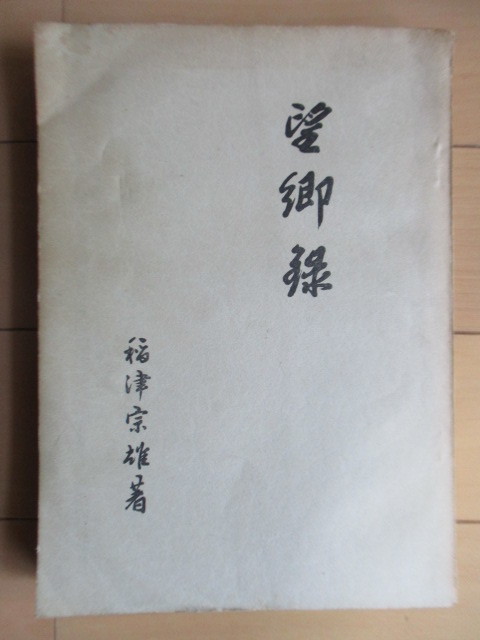 望郷録
稲津宗雄著